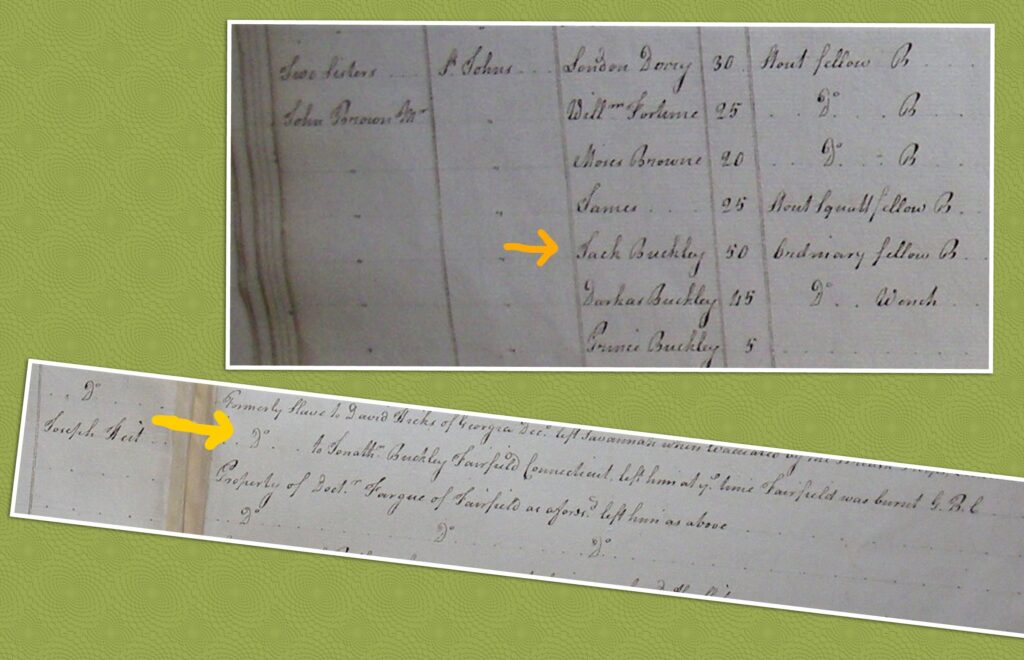 Two Sisters St. Johns London Derry 30 Stout fellow B
John Brown Mr " Willm Fortune 25 Do B
" " Moses Browne 20 Do B
" " James 25 Stout Squatt fellow B
" " Jack Buckley 50 Ordinary fellow B
Darkas Buckley 45 Do Wench
Prince Buckley 5
Do Formerly Slave to David Hicks of Georgia Decd. left Savannah when evacuated by the British
Joseph Do to Jonathn. Buckley Fairfield Connecticut left him at ye. time Fairfield was burnt G. B. C
Property of Doctr. Fargue of Fairfield as aforsd. left him as above
Do Do Do